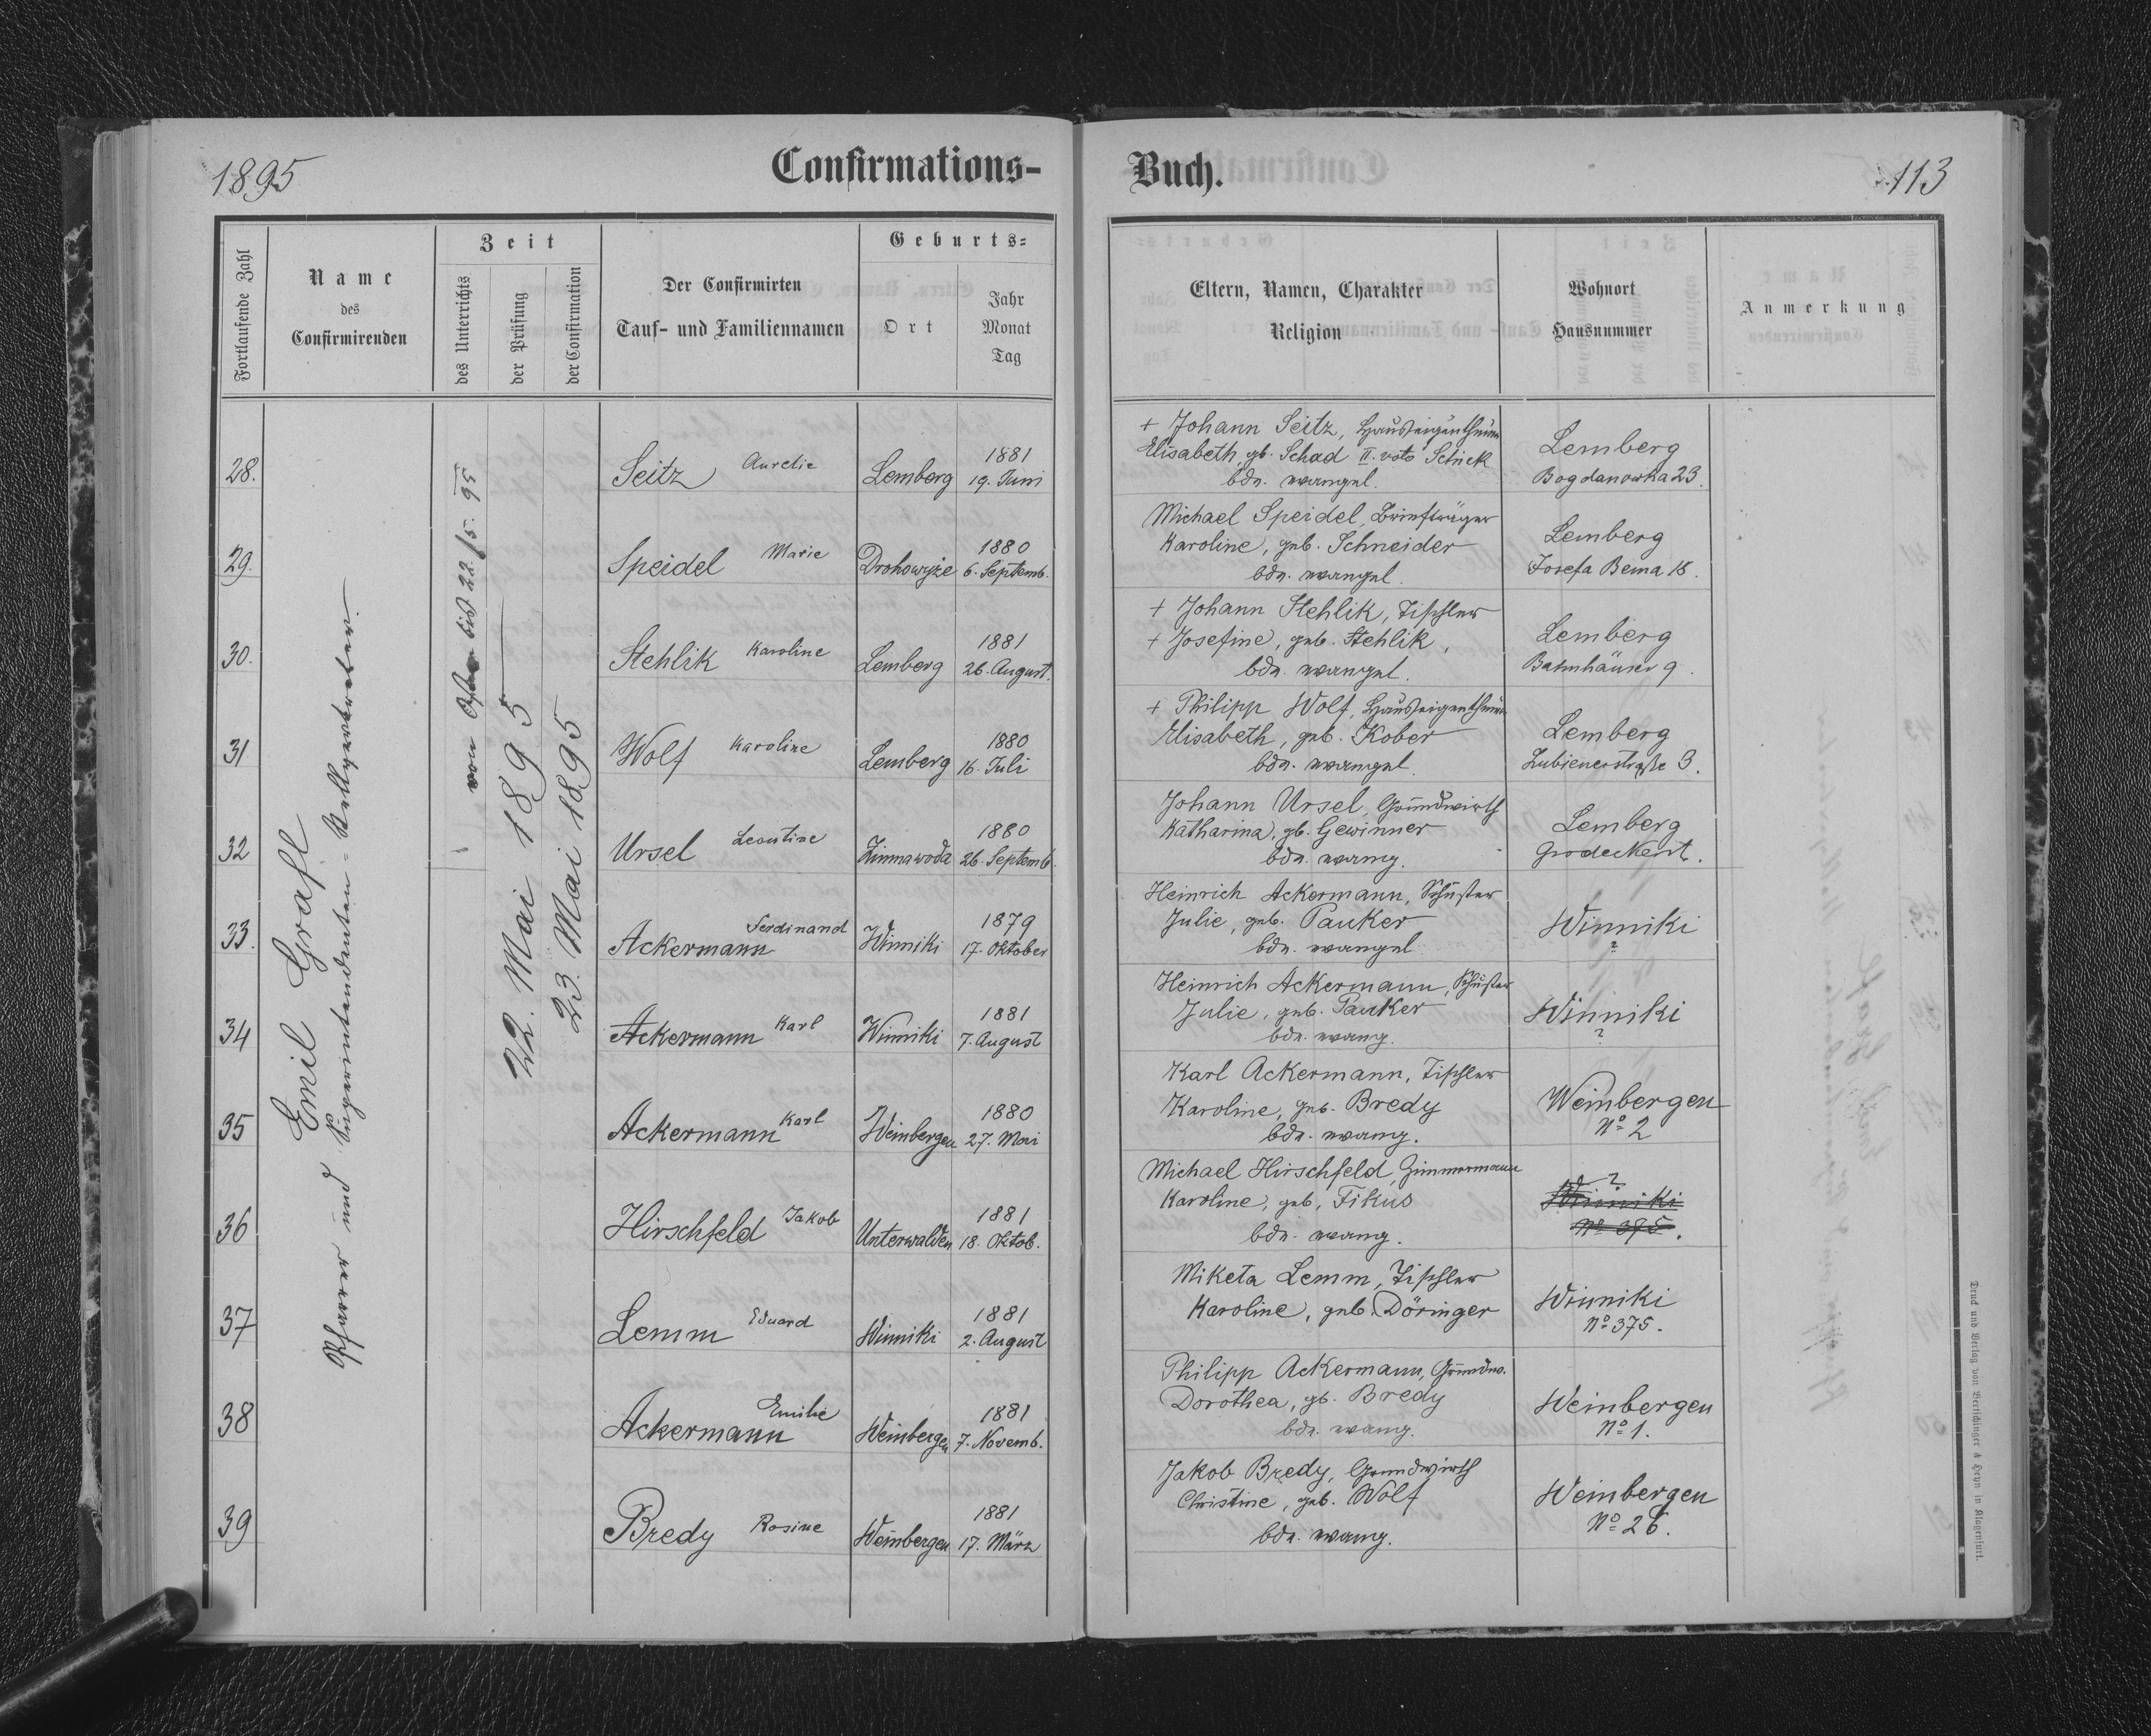 1895
Confirmations-
Buch.
113
Fortlaufende Zahl
Name
des
Confirmirenden
Zeit
des Unterrichts
der Prüfung
der Confirmation
Der Confirmirten
Tauf- und Familiennamen
Geburts-
Ort
Jahr
Monat
Tag
Eltern, Namen, Charakter
Religion
Wohnort
Hausnummer
Anmerkung
Emil Grafl
Pfarrer und Superintendenten-Stellvertreter.
von bis 22/5. 95
22. Mai 1895
23. Mai 1895
28.
Seitz Aurelie
Lemberg
1881
19. Juni
+ Johann Seitz, Hauseigenthümer
Elisabeth, gb. Schad II. voto Schick
bde. evangel.
Lemberg
Bogdanowka 23.
29.
Speidel Marie
Drohowyże
1880
6. Septemb.
Michael Speidel, Briefträger
Karoline, geb. Schneider
bde. evangel.
Lemberg
Josefa Bema 18.
30.
Stehlik Karoline
Lemberg
1881
26. August.
+ Johann Stehlik, Tischler
+ Josefine, geb. Stehlik,
bde. evangel.
Lemberg
Bahnhäuser 9.
31
Wolf Karoline
Lemberg
1880
16. Juli
+ Philipp Wolf, Hauseigenthümer
Elisabeth, geb. Kober
bde. evangel.
Lemberg
3.
32
Ursel Leontine
Zimnawoda
1880
26. Septemb.
Johann Ursel, Grundwirth
Katharina, gb. Gewinner
bde. evang.
Lemberg
33.
Ackermann Ferdinand
Winniki
1879
17. Oktober
Heinrich Ackermann, Schuster
Julie, geb. Pauker
bde. evangel.
Winniki
?
34
Ackermann Karl
Winniki
1881
7. August
Heinrich Ackermann, Schuster
Julie, geb. Pauker
bde. evang.
Winniki
?
35
Ackermann Karl
Weinbergen
1880
27. Mai
Karl Ackermann, Tischler
Karoline, geb. Bredy
bde. evang.
Weinbergen
No 2
36
Hirschfeld Jakob
Unterwalden
1881
18. Oktob.
Michael Hirschfeld, Zimmermann
Karoline, geb. Fikus
bde. evang.
?
Winniki
No 375.
37
Lemm Eduard
Winniki
1881
2. August
Miketa Lemm, Tischler
Karoline, geb. Döringer
Winniki
No 375.
38
Ackermann Emilie
Weinbergen
1881
7. Novemb.
Philipp Ackermann, Grundw.
Dorothea, gb. Bredy
bde. evang.
Weinbergen
No 1.
39
Bredy Rosine
Weinbergen
1881
17. März
Jakob Bredy, Grundwirth
Christine, geb. Wolf
bde. evang.
Weinbergen
No 26.
Druck und Verlag von Bertschinger & Heyn in Klagenfurt.